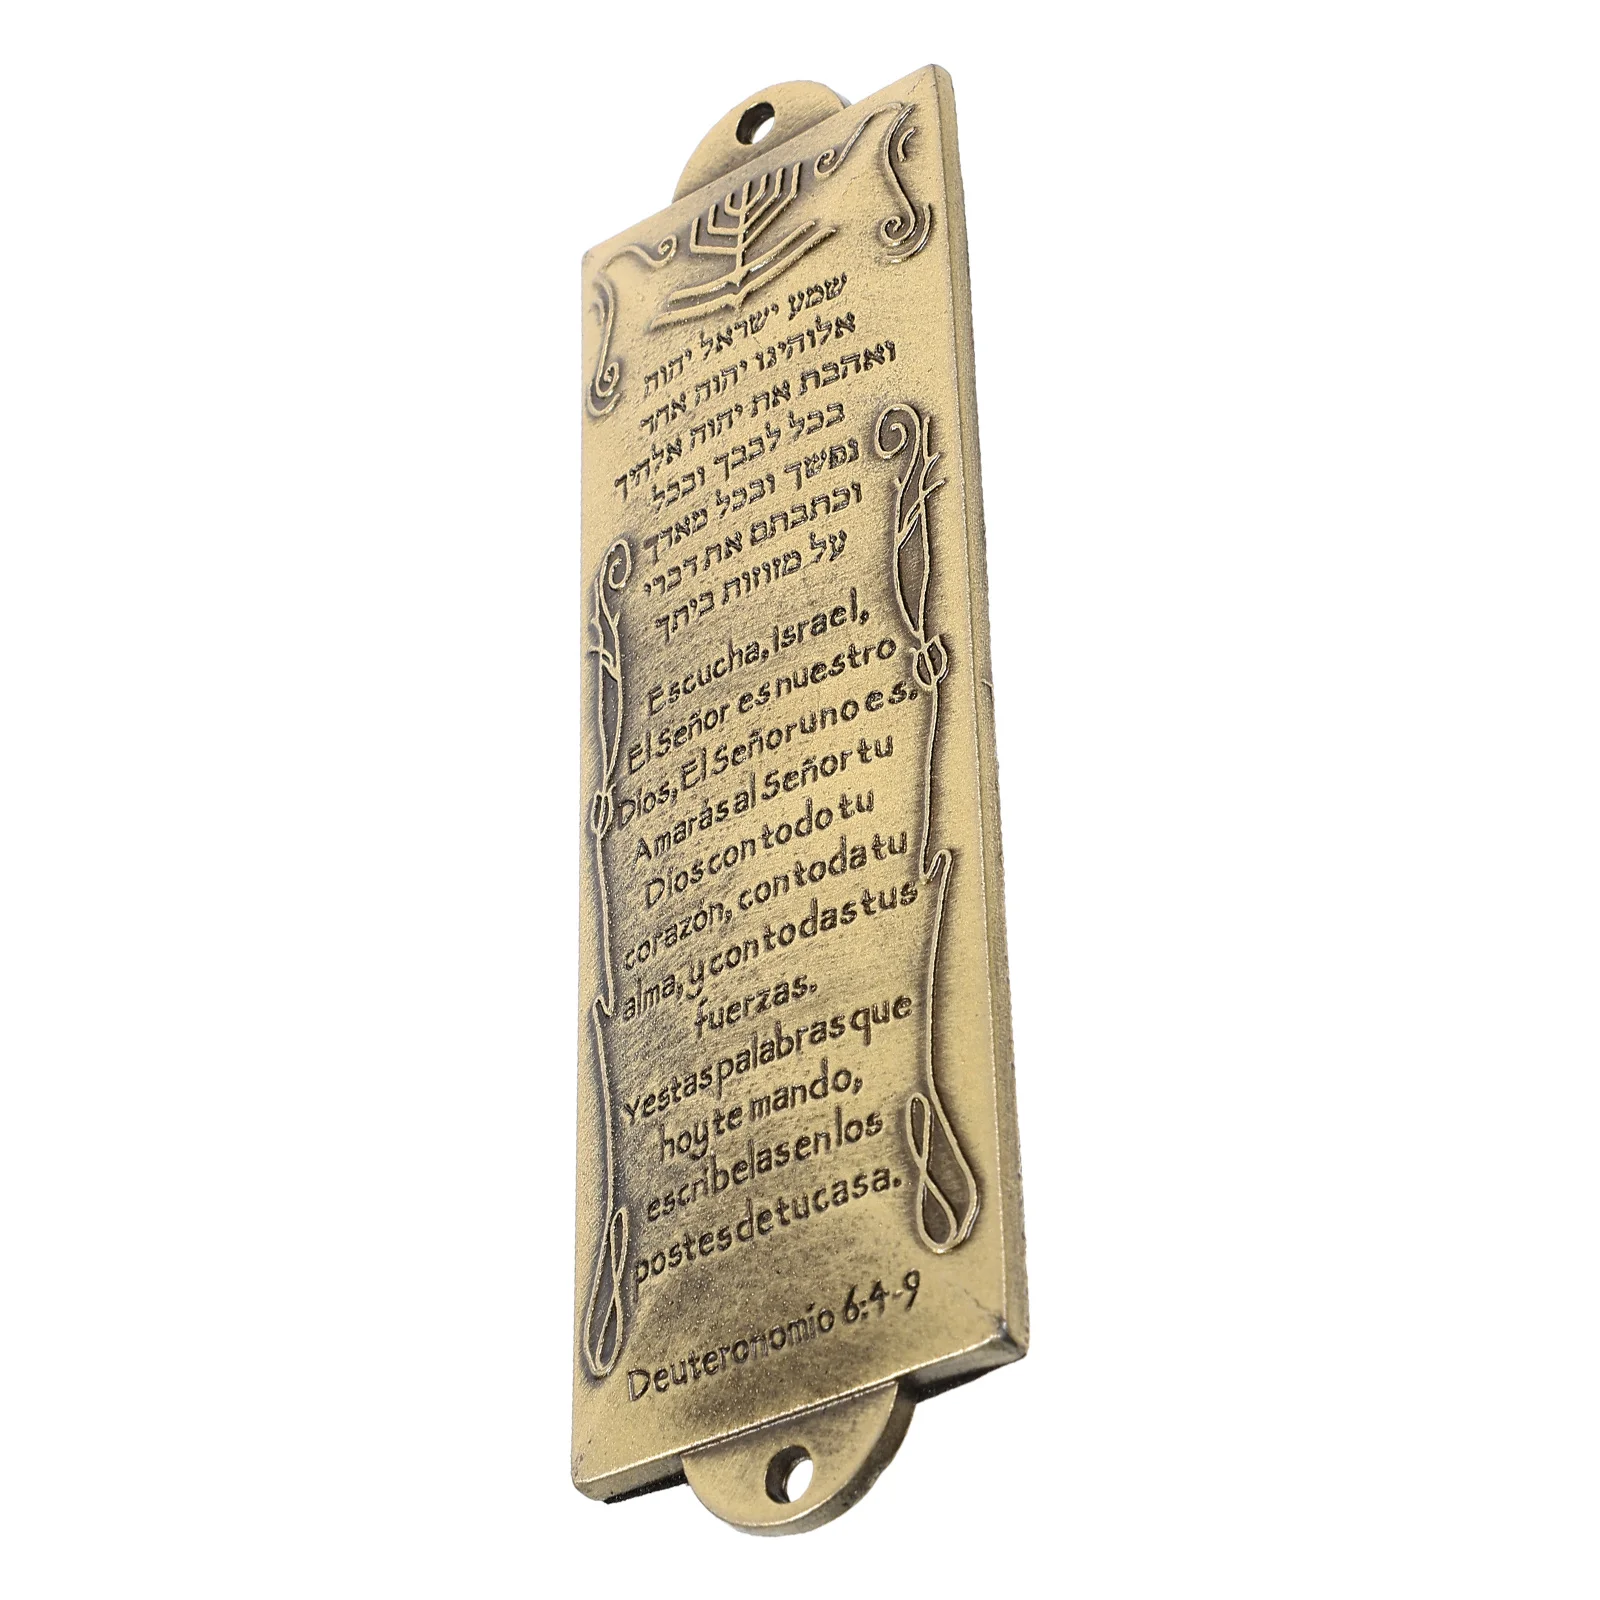 שמע ישראל יהוה
אלוהינו יהוה אחד
ואהבת את יהוה אלהיך
בכל לבבך ובכל
נפשך ובכל מארך
וכתבתם את דברי
על מזוזות ביתך
Escucha, Israel,
El Señor es nuestro
Dios, El Señor uno es.
Amarás al Señor tu
Dios con todo tu
corazón, con toda tu
alma, y con todas tus
fuerzas.
Y estas palabras que
hoy te mando,
escríbelas en los
postes de tu casa.
Deuteronomío 6:4-9